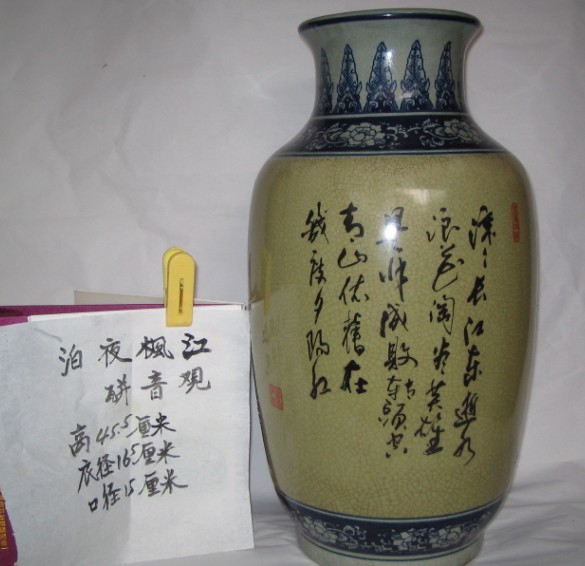 滚〻长江东逝水
浪花淘尽英雄
是非成敗转頭空
青山依舊在
幾度夕陽红
江楓夜泊
觀音
高45.5厘米
底径16.5厘米
口径15厘米